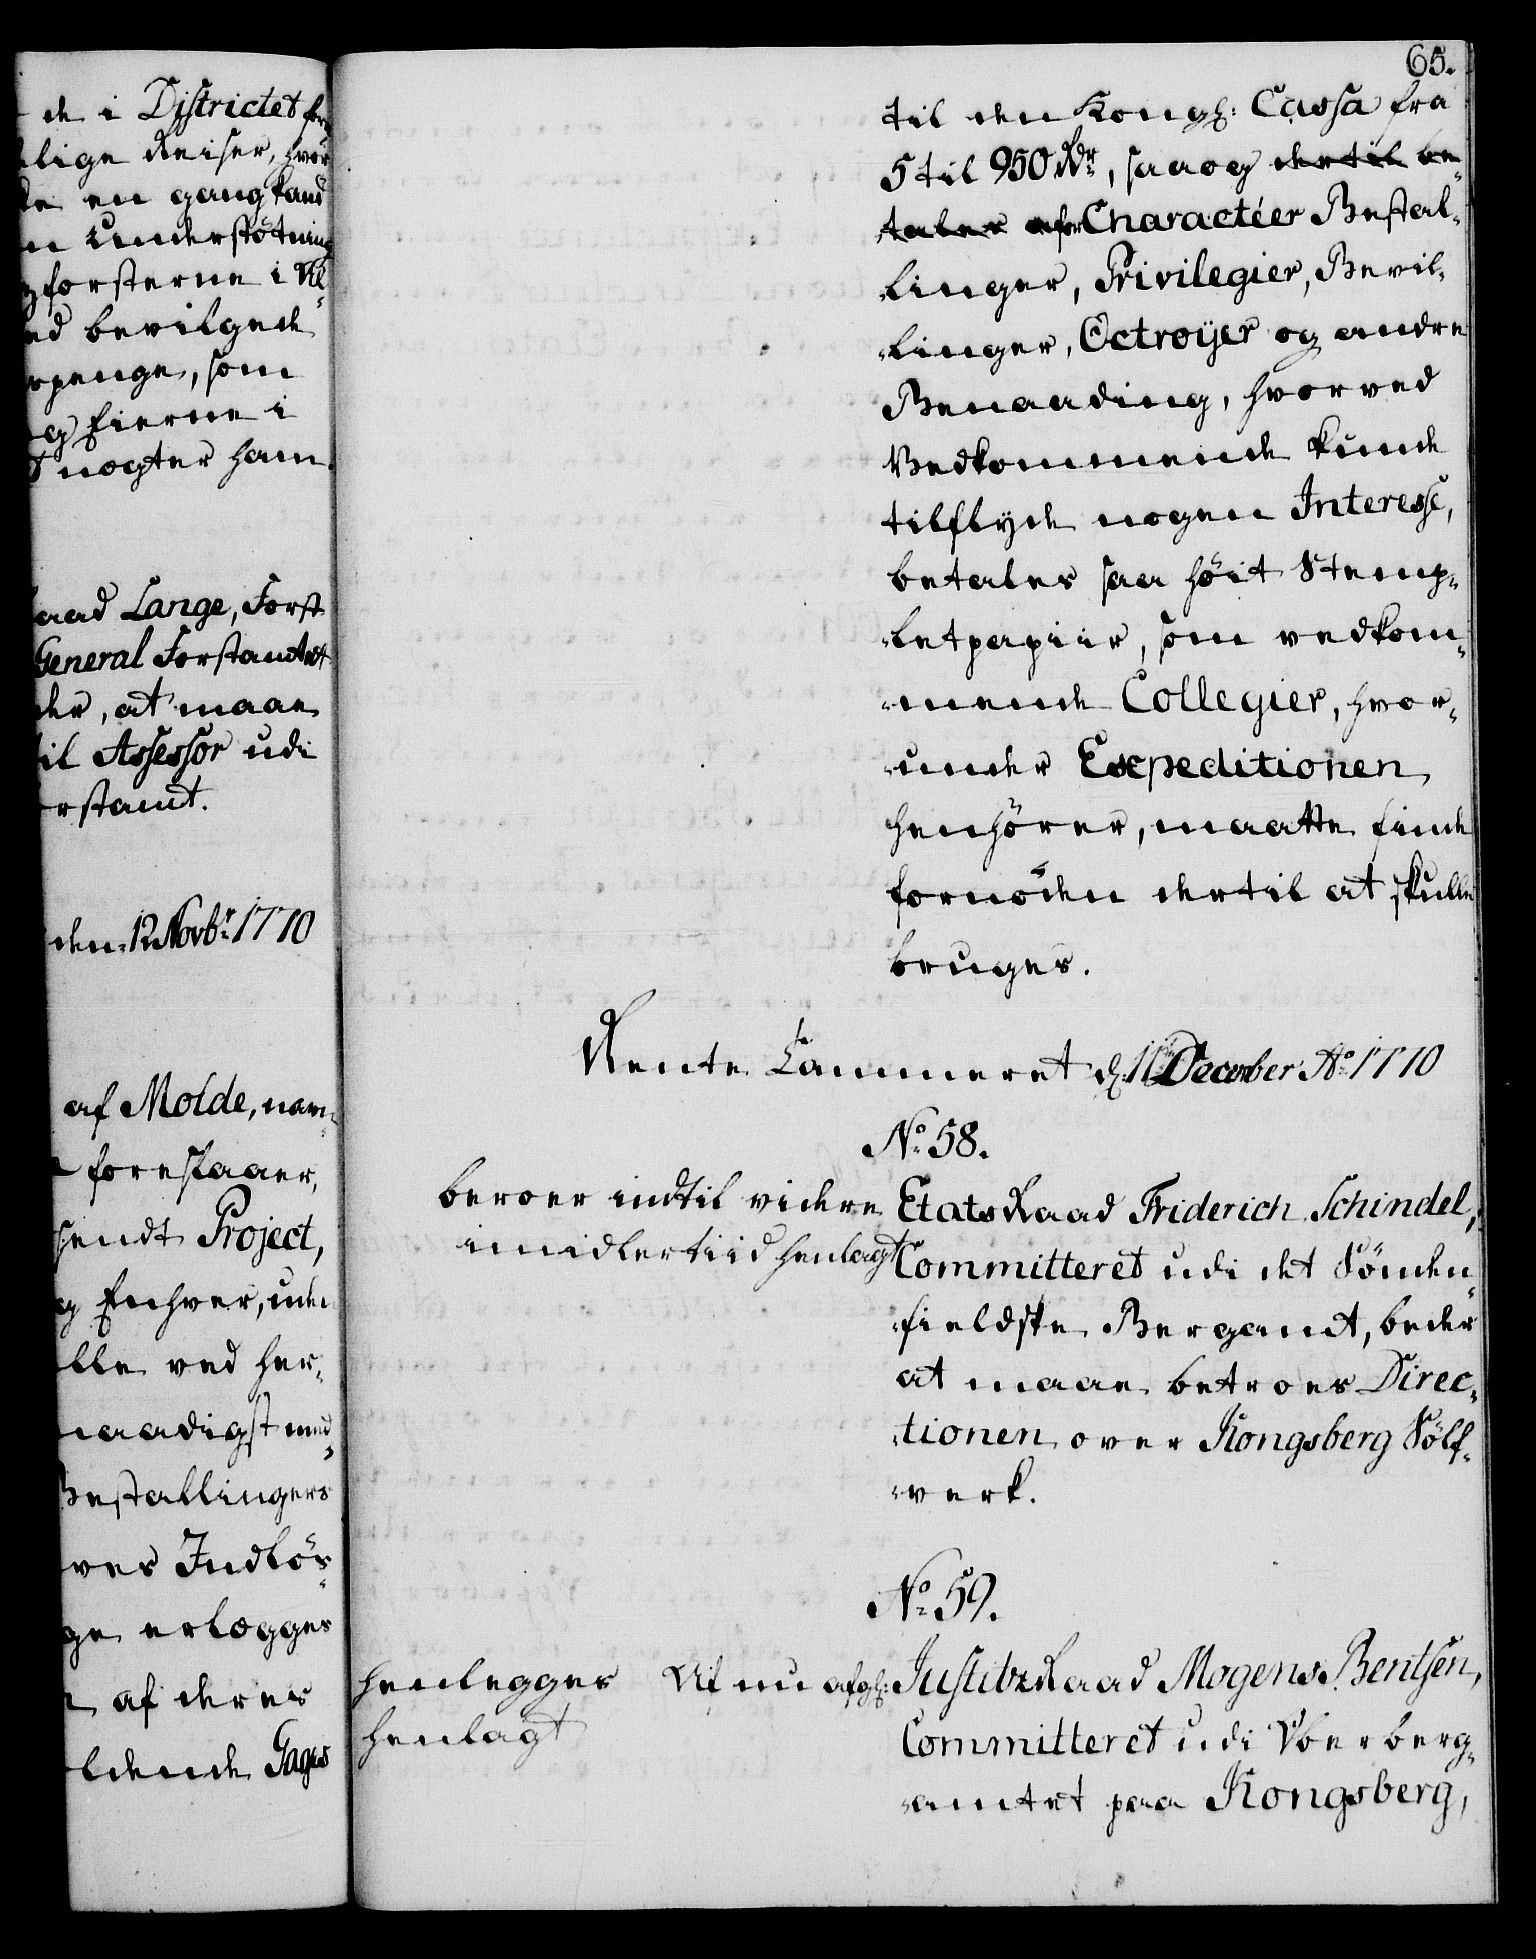 de i Districtet
lige Reiser, hvor
en gang kand
n Understøtning
gforsterne i
ed bevilgede
penge, som
og Eierne i
nogter ham
aad Lange, Forst
General Forstamtet
der, at maae
til Assessor udi
rstamt.
den 12 Novbr: 1770
af Molde, nem„
forestaaer,
sendt Project,
og Enhver, uden
lle ved her„
naadigst med„
Bestallingers
ves Indløs„
ge erlegges
af deres
ldende Gages
65.
til den Kongl: Cassa fra
5 til 950 Rdr, saa og dertil be„
tales Charactéer Bestal„
„linger, Privilegier, Bevil„
„linger, Octroyer og andre
Benaading, hvorved
Vedkommende kunde
tilflyde nogen Interesse,
betales saa høit Stemp„
„letpapiir, som vedkom„
„mende Collegier, hvor„
„under Expeditionen
henhører, maatte finde
fornöden dertil at skulle
bruges.
Rente Cammeret d: 11te December Ao 1770
No 58.
beroer indtil videre
imidlertiid henlagt
Etats Raad Friderich Schindel,
Committeret udi det Sönden„
„fieldske Bergamt, beder
at maae betroes Direc„
„tionen over Kongsberg Sölf„
„verk.
No 59.
henlegges
henlagt
Af nu afg:
Justitz Raad Mogens Bentsen,
Committeret udi Oberberg„
„amtet paa Kongsberg,